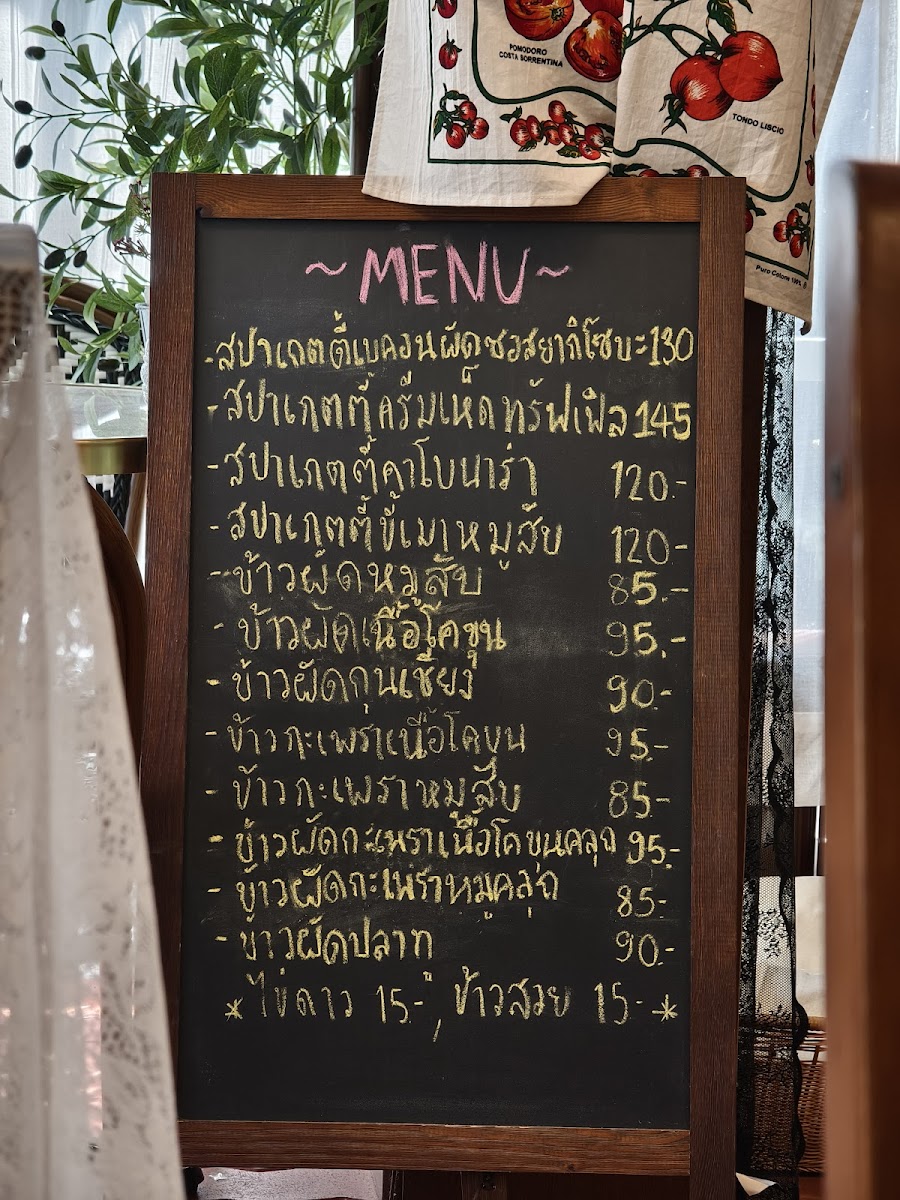 POMODORO
COSTA SORRENTINA
TONDO LISCIO
Puro Cotone 100%
~MENU~
-สปาเกตตี้เบคอนผัดซอสยากิโซบะ130
-สปาเกตตี้ครีมเห็ดทรัฟเฟิล 145
-สปาเกตตี้คาโบนาร่า 120.-
-สปาเกตตี้ขี้เมาหมูสับ 120-
-ข้าวผัดหมูสับ 85.-
-ข้าวผัดเนื้อโคขุน 95.-
-ข้าวผัดกุนเชียง 90.-
-ข้าวกะเพราเนื้อโคขุน 95.-
-ข้าวกะเพราหมูสับ 85.-
-ข้าวผัดกะเพราเนื้อโคขุนคลุก 95.-
-ข้าวผัดกะเพราหมูคลุก 85.-
-ข้าวผัดปลาทู 90.-
*ไข่ดาว 15.-, ข้าวสวย 15.-*